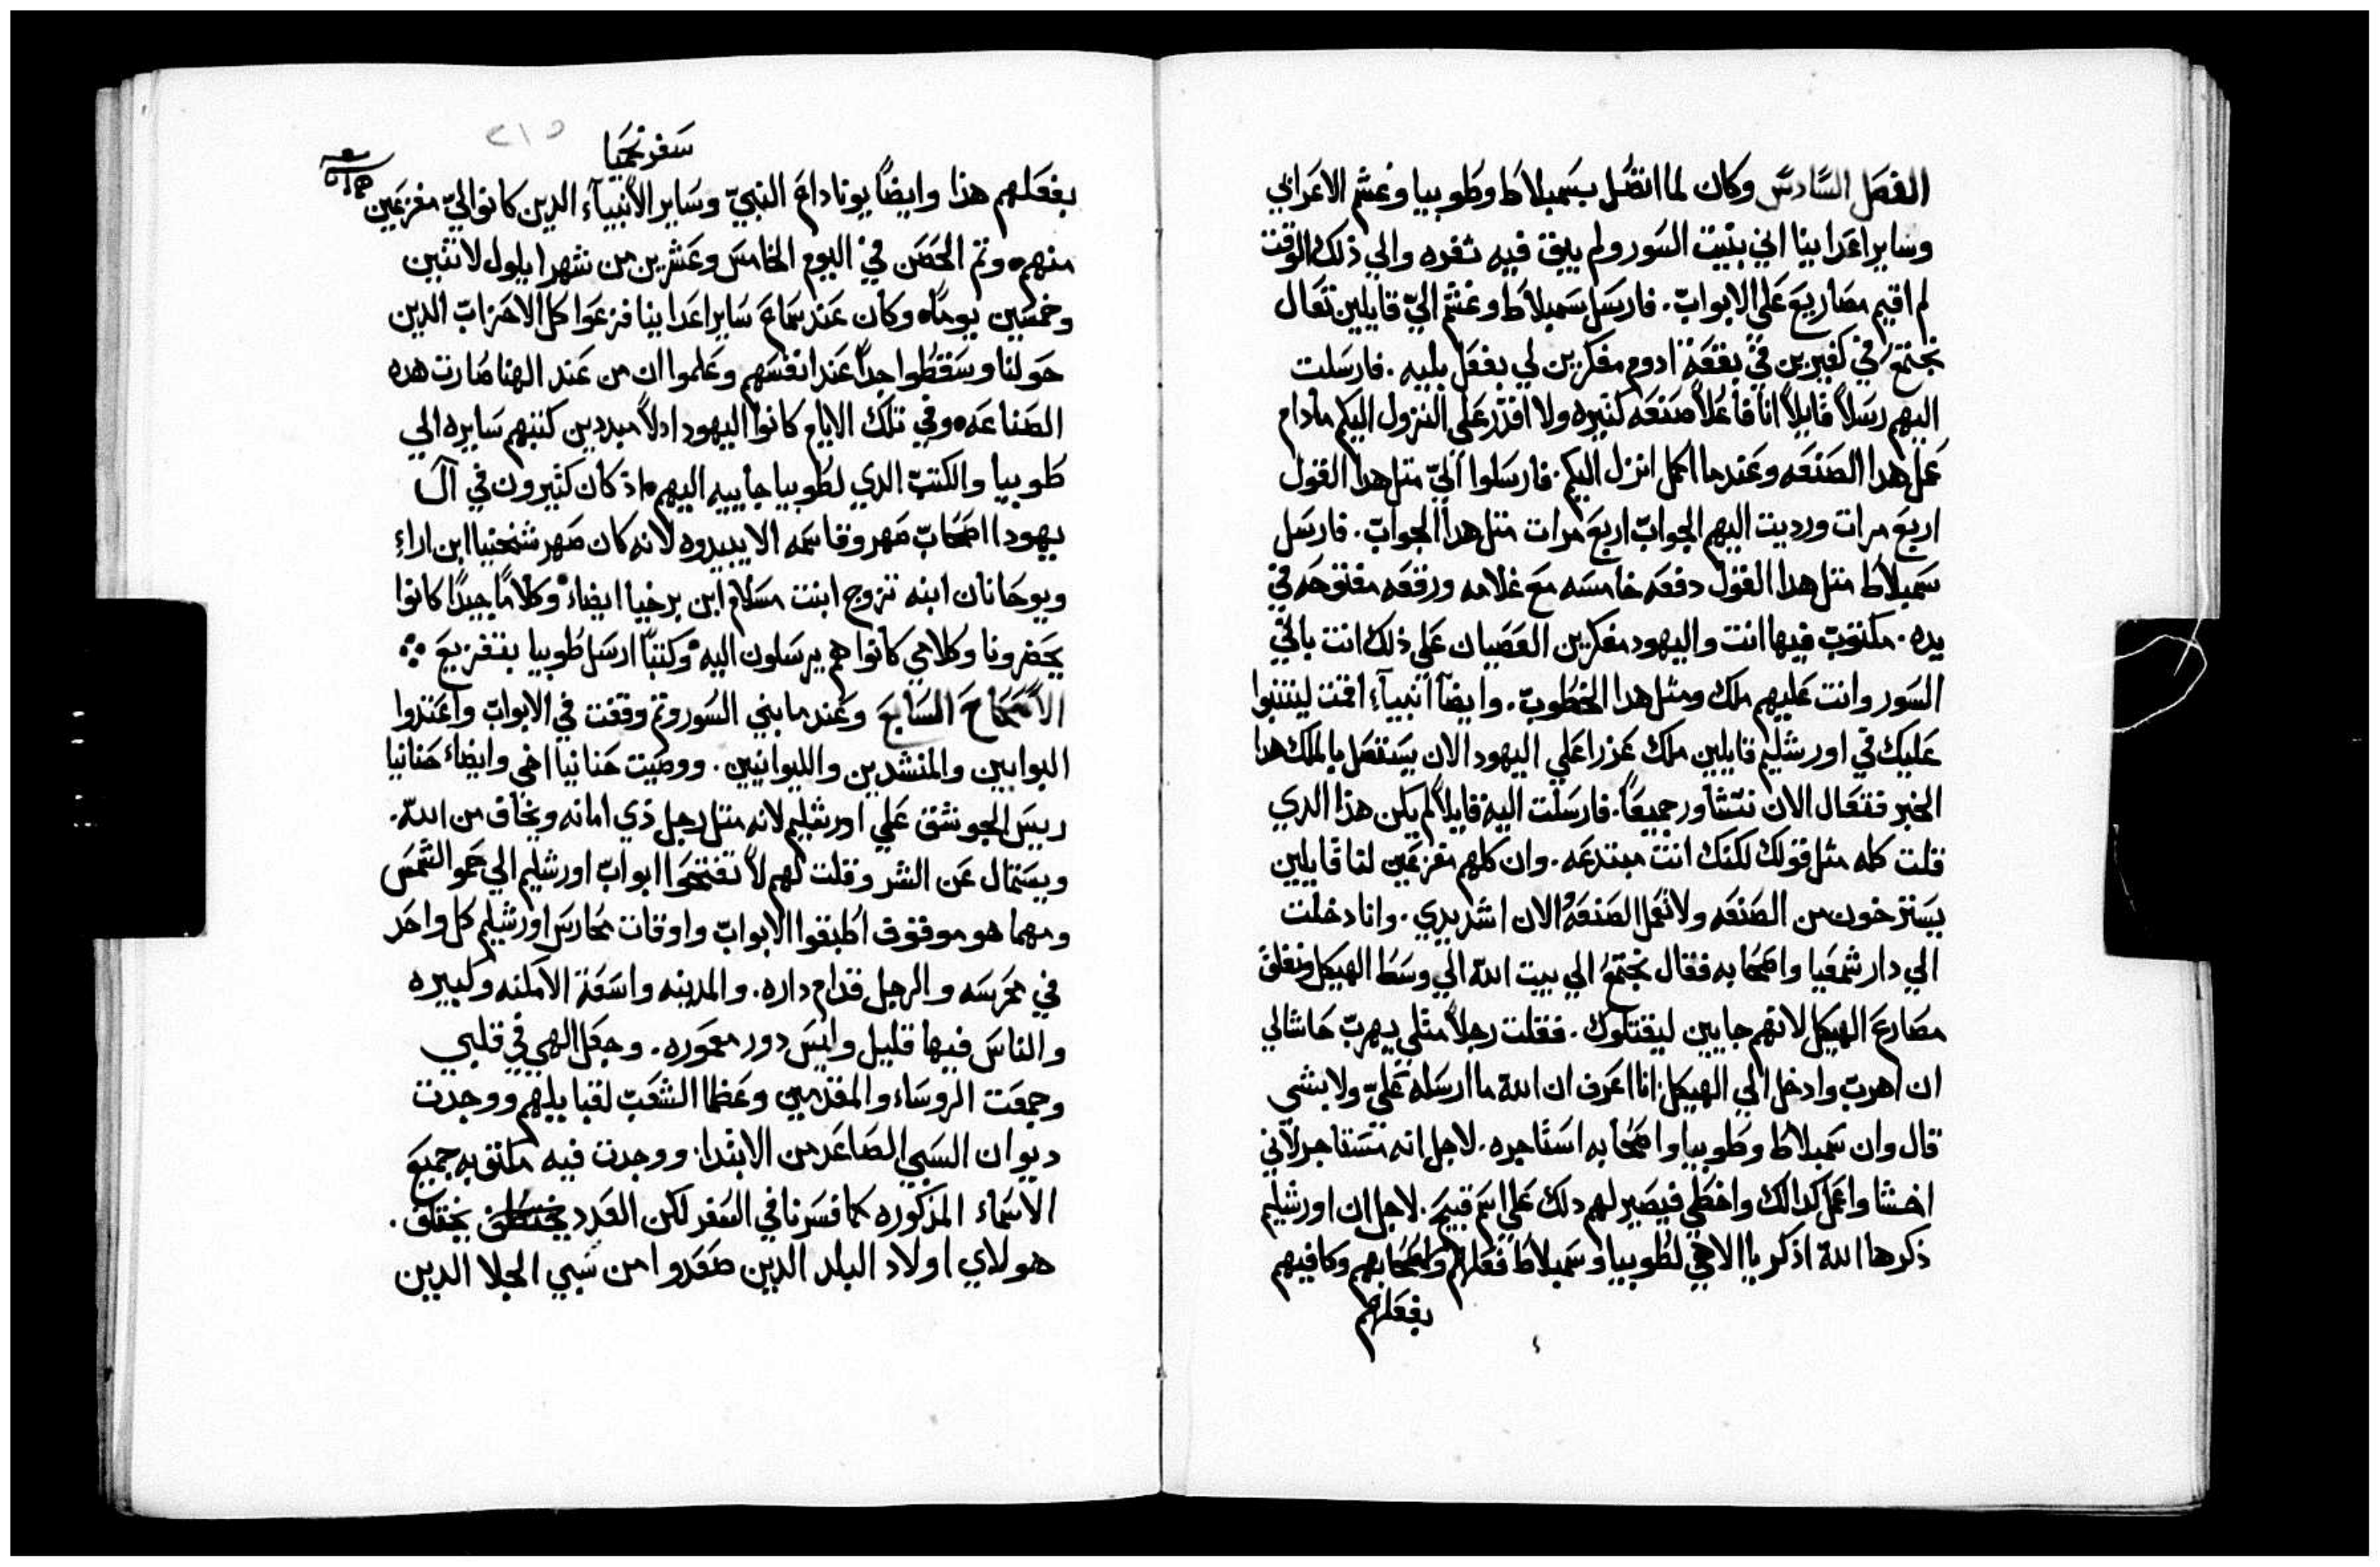 الفصل السادس وكان لما اتصل بسمبلاط وطوبيا وغشم الاعرابي
وساير اعدابينا اني بنيت السور ولم يبق فيه ثغره والي ذلك الوقت
لم اقيم مصاريع علي الابواب. فارسل سمبلاط وغشم اليّ قايلين تعال
نجتمع في كفيرين في بقعة ادوم مفكرين لي بفعل بليه. فارسلت
اليهم رسلاً قايلاً انا فاعلاً صنعه كثيره ولا اقدر علي النزول اليكم مادام
عمل هدا الصنعه وعندما اكمل انزل اليكم. فارسلوا اليّ مثل هدا القول
اربع مرات ورديت اليهم الجواب اربع مرات مثل هدا الجواب. فارسل
سمبلاط مثل هدا القول دفعه خامسه مع غلامه ورقعه مفتوحه في
يده. مكتوب فيها انت واليهود مفكرين العصيان علي ذلك انت باني
السور وانت عليهم ملك ومثل هدا الخطوب. وايضاً انبيآء اقمت ليتنبوا
عليك في اورشليم قايلين ملك عزرا علي اليهود الان يستتصل بالملك هدا
الخبر فتعال الان نتشاور جميعاً. فارسلت اليه قايلاً لم يكن هذا الدي
قلت كله مثل قولك لكنك انت مبتدعه. وان كلهم مفزعين لنا قايلين
يسترخون من الصنعه ولا تعمل الصنعه والان اشدد يدي. وانا دخلت
الي دار شمعيا واصحابه فقال نجتمع الي بيت الله الي وسط الهيكل ونغلق
مصارع الهيكل لانهم جايين ليقتلوك. فقلت رجلاً مثلي يهرب حاشالي
ان اهرب وادخل الي الهيكل. انا اعرف ان الله ما ارسله عليّ ولا بشي
قال وان سمبلاط وطوبيا واصحابه استاجره. لاجل انه تستاجر لاني
اخشا واعمل كدالك واخطي فيصير لهم دلك علي اسم قبيح. لاجل ان اورشليم
ذكرها الله اذكر يا الاهي لطوبيا وسمبلاط فعلهم واصحابهم وكافيهم
بفعلهم
سفر نحميا
٢١٥
بفعلهم هذا وايضاً يوناداع النبيّ وساير الانبيآء الدين كانوا اليّ مفزعين
منهم ه وتم الحصن في اليوم الخامس وعشرين من شهر ايلول لاثنين
وخمسين يوماً ه وكان عند سماع ساير اعدابينا فزعوا كل الاحزاب الدين
حولنا وسقطوا جداً عند انفسهم وعلموا ان من عند الهنا صارت هده
الصناعه ه وفي تلك الايام كانوا اليهود اولاً مبددين كتبهم سايره الي
طوبيا والكتب الدي لطوبيا جاييه اليهم ه اذ كان كثيرون في آل
يهودا اصحاب صهر وقاسمه الا يبيدوه لانه كان صهر شنحنيا ابن اراء
ويوحانان ابنه تزوج ابنت مسلام ابن برخيا ايضاء وكلاماً جيداً كانوا
يحضرونا وكلامي كانوا هم يرسلون اليه وكتباً ارسل طوبيا بتفزيع
الاصحاح السابع وعندما بني السور وتم وقفت في الابواب واعتدوا
البوابين والمنشدين والليوانيين. ووصيت حنانيا اخي وايضاء حنانيا
رييس الجوشق علي اورشليم لانه مثل رجل ذي امانه ويخاف من الله.
ويستمال عن الشر وقلت لهم لا تفتحوا ابواب اورشليم الي حمو الشمس
ومهما هو موقوف اطبقوا الابواب واوقات محارس اورشليم كل واحد
في محرسه والرجل قدام داره. والمدينه واسعة الامكنه وكبيره
والناس فيها قليل وليس دور معموره. وجعل الهي في قلبي
وجمعت الروساء والمقدمين وعظما الشعب لقبايلهم ووجدت
ديوان السبي الصاعد من الابتدا. ووجدت فيه مكتوبه جميع
الاسماء المذكوره كما فسرنا في السفر لكن العدد يختلف.
هولاي اولاد البلد الدين صعدوا من سبي الجلا الدين